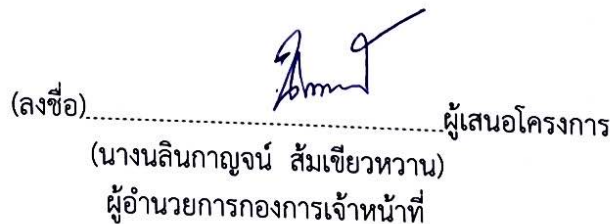 (ลงชื่อ)........................................................ผู้เสนอโครงการ
(นางนลินกาญจน์ ส้มเขียวหวาน)
ผู้อำนวยการกองการเจ้าหน้าที่